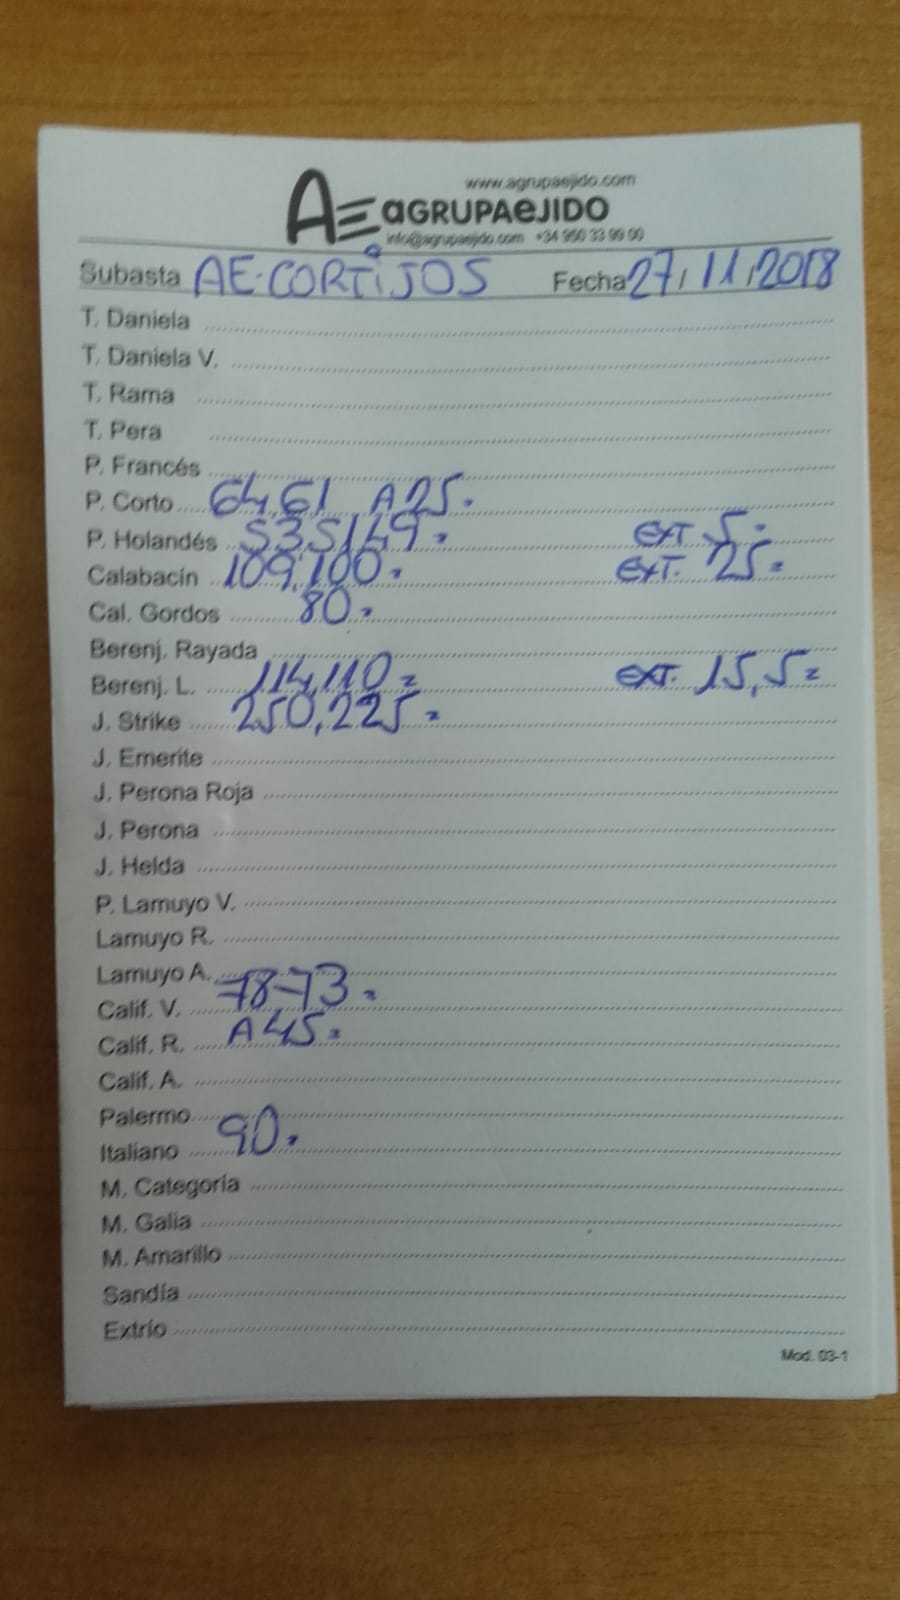 www.agrupaejido.com
AE AGRUPAEJIDO
info@agrupaejido.com +34 950 33 99 00
Subasta AE.CORTIJOS Fecha 27/11/2018
T. Daniela
T. Daniela V.
T. Rama
T. Pera
P. Francés
P. Corto 64,61 A 25.
P. Holandés 53,51,49. EXT 5.
Calabacín 109,100. EXT. 25.
Cal. Gordos 80.
Berenj. Rayada
Berenj. L. 114,110. EXT. 15,5.
J. Strike 250,225.
J. Emerite
J. Perona Roja
J. Perona
J. Helda
P. Lamuyo V.
Lamuyo R.
Lamuyo A.
Calif. V. 78-73.
Calif. R. A 45.
Calif. A.
Palermo
Italiano 90.
M. Categoría
M. Galia
M. Amarillo
Sandía
Extrío
Mod. 03-1